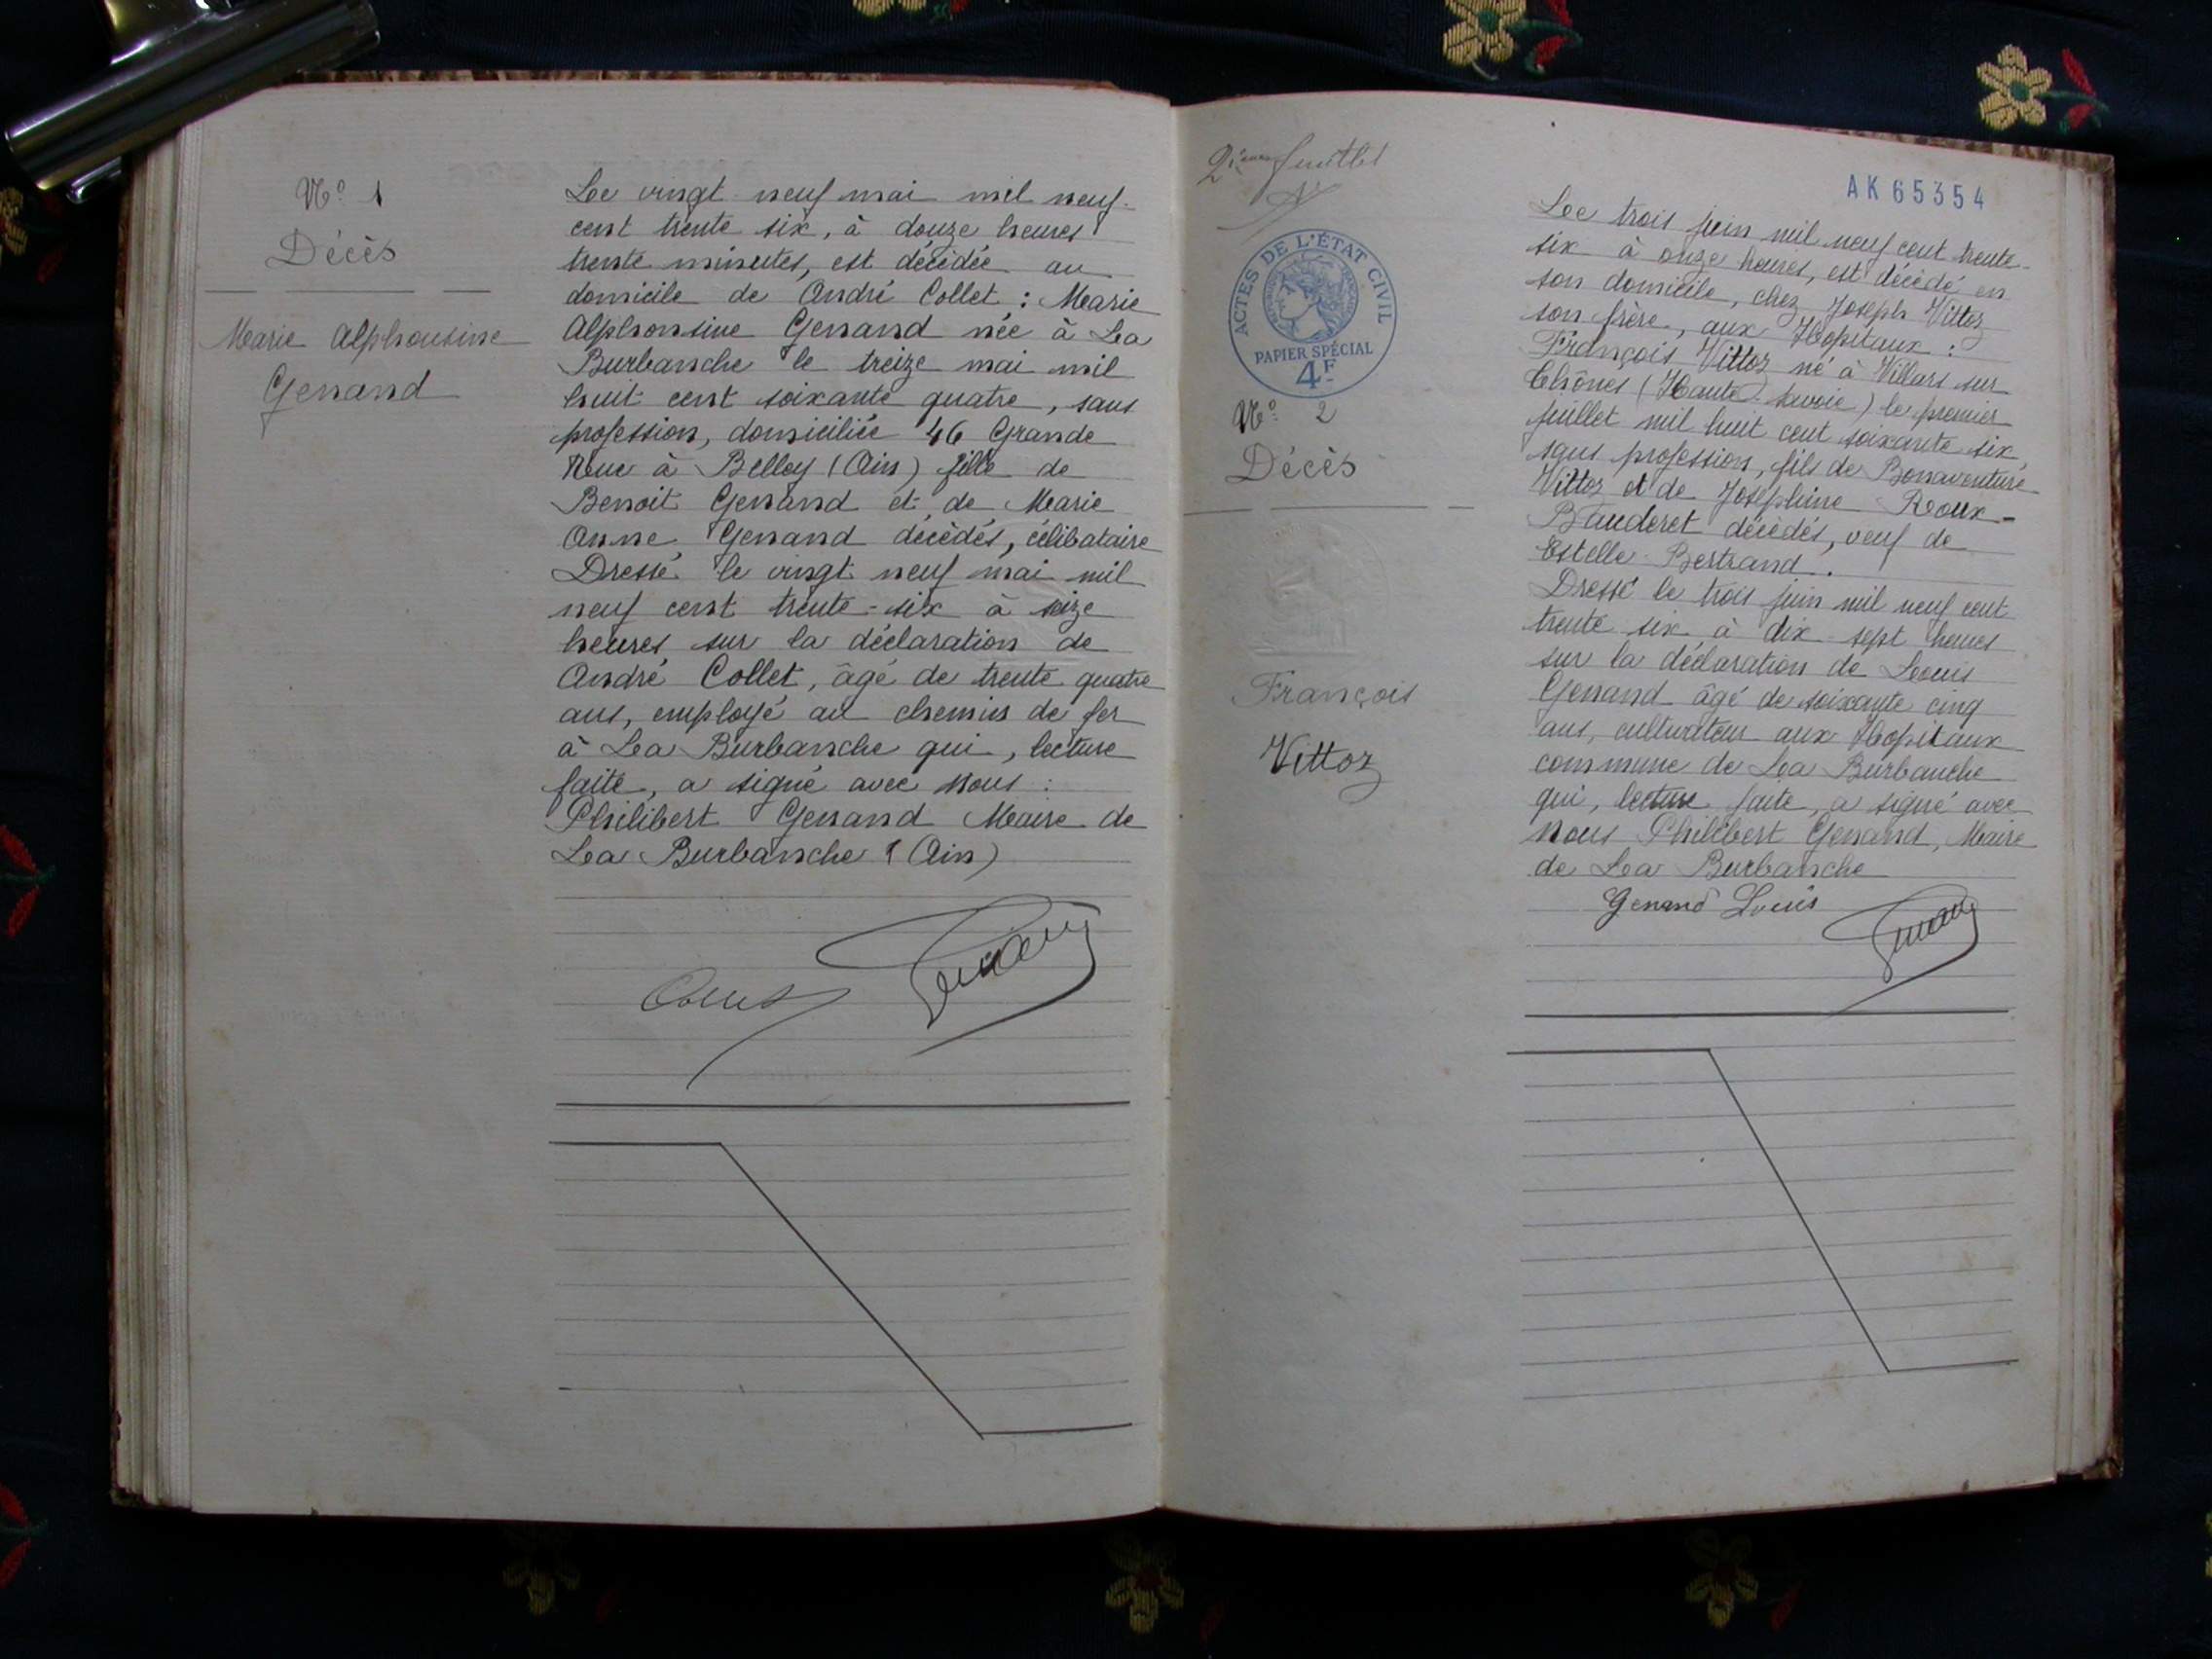 Nº 1
Décès
Marie Alphonsine
Genand
Le vingt neuf mai mil neuf
cent trente six, à douze heures
trente minutes, est décédée au
domicile de André Collet : Marie
Alphonsine Genand née à La
Burbanche le treize mai mil
huit cent soixante quatre, sans
profession, domiciliée 46 Grande
Rue à Belley (Ain) fille de
Benoit Genand et de Marie
Anne Genand décédés, célibataire
Dressé le vingt neuf mai mil
neuf cent trente-six à seize
heures sur la déclaration de
André Collet, âgé de trente quatre
ans, employé au chemin de fer
à La Burbanche qui, lecture
faite, a signé avec nous :
Philibert Genand Maire de
La Burbanche (Ain)
2ième feuillet
ACTES DE L'ÉTAT CIVIL
PAPIER SPÉCIAL
4F
Nº 2
Décès
François
Vittoz
AK 65354
Le trois juin mil neuf cent trente
six à onze heures, est décédé en
son domicile, chez Joseph Vittoz
son frère, aux Hopitaux :
François Vittoz né à Villars sur
Thônes (Haute-Savoie) le premier
juillet mil huit cent soixante six
sans profession, fils de Bonaventure
Vittoz et de Joséphine Roux-
Bauderet décédés, veuf de
Estelle Bertrand.
Dressé le trois juin mil neuf cent
trente six à dix-sept heures
sur la déclaration de Louis
Genand âgé de soixante cinq
ans, cultivateur aux Hopitaux
commune de La Burbanche
qui, lecture faite, a signé avec
nous Philibert Genand, Maire
de La Burbanche
Genand Louis
Genand